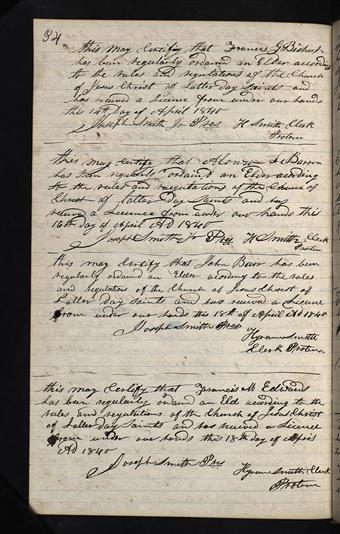 34
this may Certify that Francis G Bishop
has been regularly ordained an Elder according
to the rules and regulations of the Church
of Jesus Christ of Latter day Saints and
has received a Licence from under our hands
this 14th day of April 1840
Joseph Smith Jr Pres H Smith Clerk
Protem
this may certify that Alonzo
has been regularly ordained an Elder according
to the rules and regulations of the Church of
Christ of Latter day Saints and has
received a Licence from under our hands this
16th day of April AD 1840
Joseph Smith Jr Pres H Smith Clerk
Protem
this may certify that John Burr has been
regularly ordained an Elder according to the rules
and regulations of the Church of Jesus Christ of
Latter Day Saints and has received a Licence
from under our hands this 18th of April AD 1840
Joseph Smith Pres
Hyrum Smith
Clerk Protem
this may Certify that Francis M Edwards
has been regularly ordained an Elder according to the
rules and regulations of the Church of Jesus Christ
of Latter day Saints and has received a Licence
from under our hands this 18th day of April
AD 1840
Joseph Smith Pres
Hyrum Smith Clerk
Protem